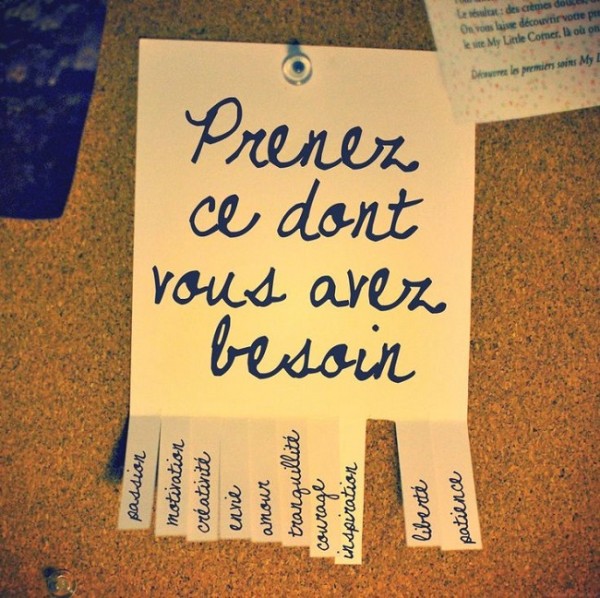 Le résultat : des crèmes douces,
On vous laisse découvrir votre
le site My Little Corner, là où
Découvrez les premiers soins My
Prenez
ce dont
vous avez
besoin
passion
motivation
créativité
envie
amour
tranquillité
courage
inspiration
liberté
patience